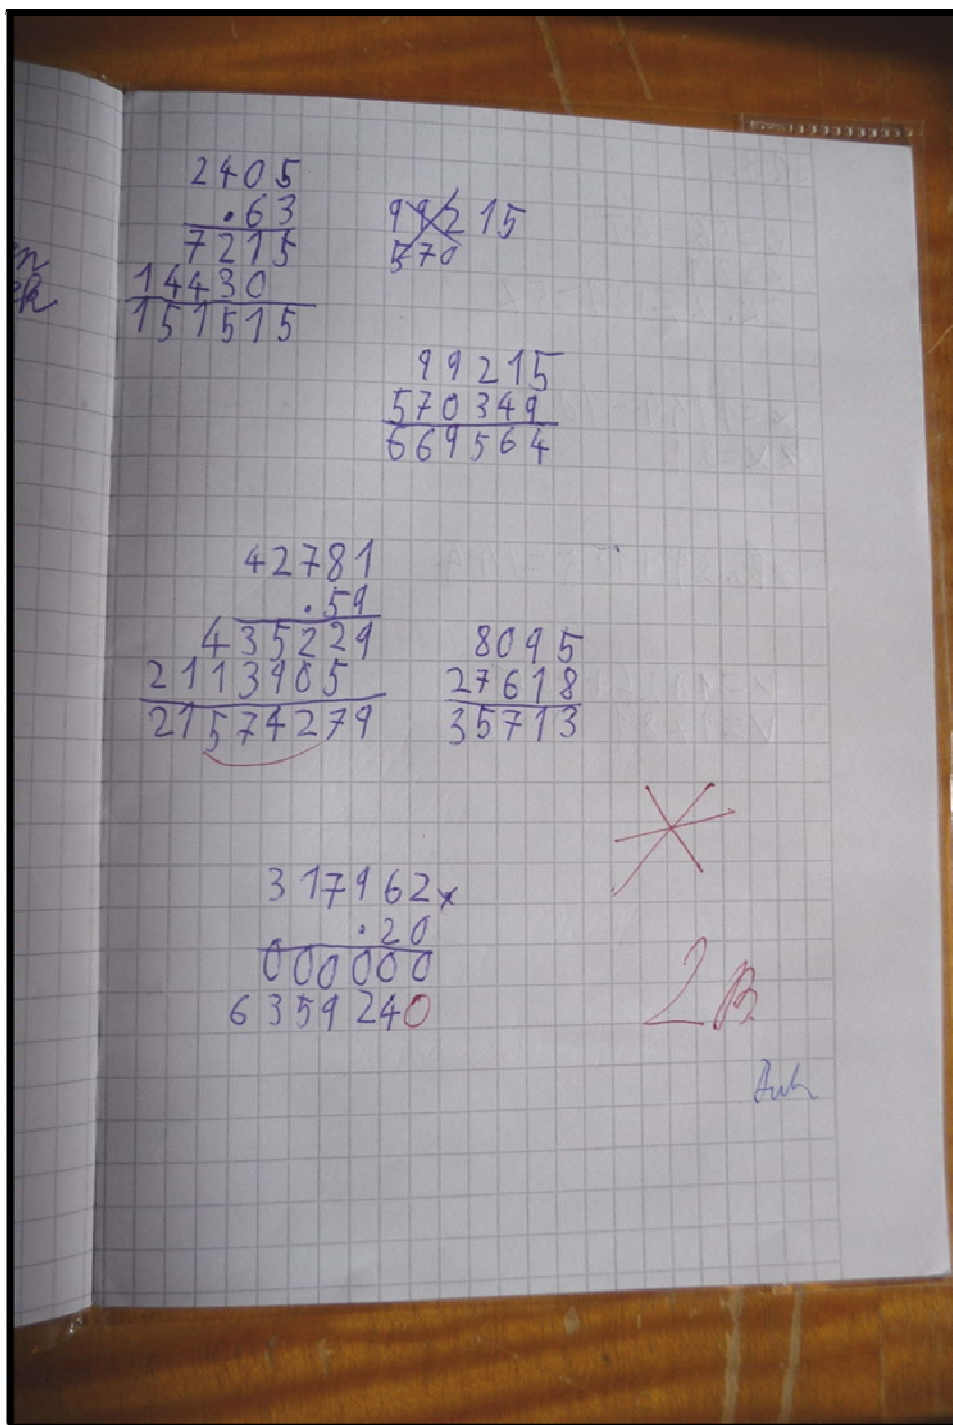 2405
.63
7215
14430
151515
99215
570
99215
570349
669564
42781
.59
435229
2113905
21574279
8095
27618
35713
317962x
.20
000000
6359240
2B